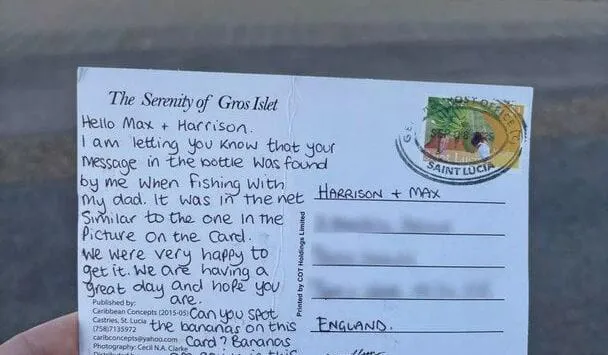 The Serenity of Gros Islet
Hello Max + Harrison.
I am letting you know that your
Message in the bottle was found
by me when fishing with
My dad. It was in the net
Similar to the one in the
Picture on the Card.
We were very happy to
get it. We are having a
great day and hope you
are.
Can you spot
the bananas on this
Card? Bananas
Published by:
Caribbean Concepts (2015-05)
Castries, St. Lucia
(758)7135972
caribconcepts@yahoo.com
Photography: Cecil N.A. Clarke
Printed by COT Holdings Limited
POST OFFICE
SAINT LUCIA
HARRISON + MAX
ENGLAND.